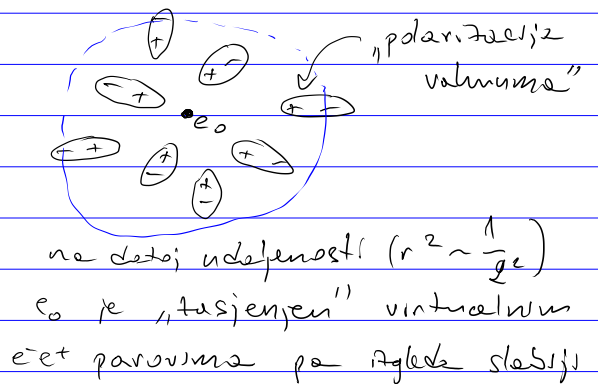 „polarizacija
vakuuma”
e₀
na datoj udaljenosti (r² ~ 1/q²)
e₀ je „zasjenjen” virtualnim
e⁻e⁺ parovima pa izgleda slabiji